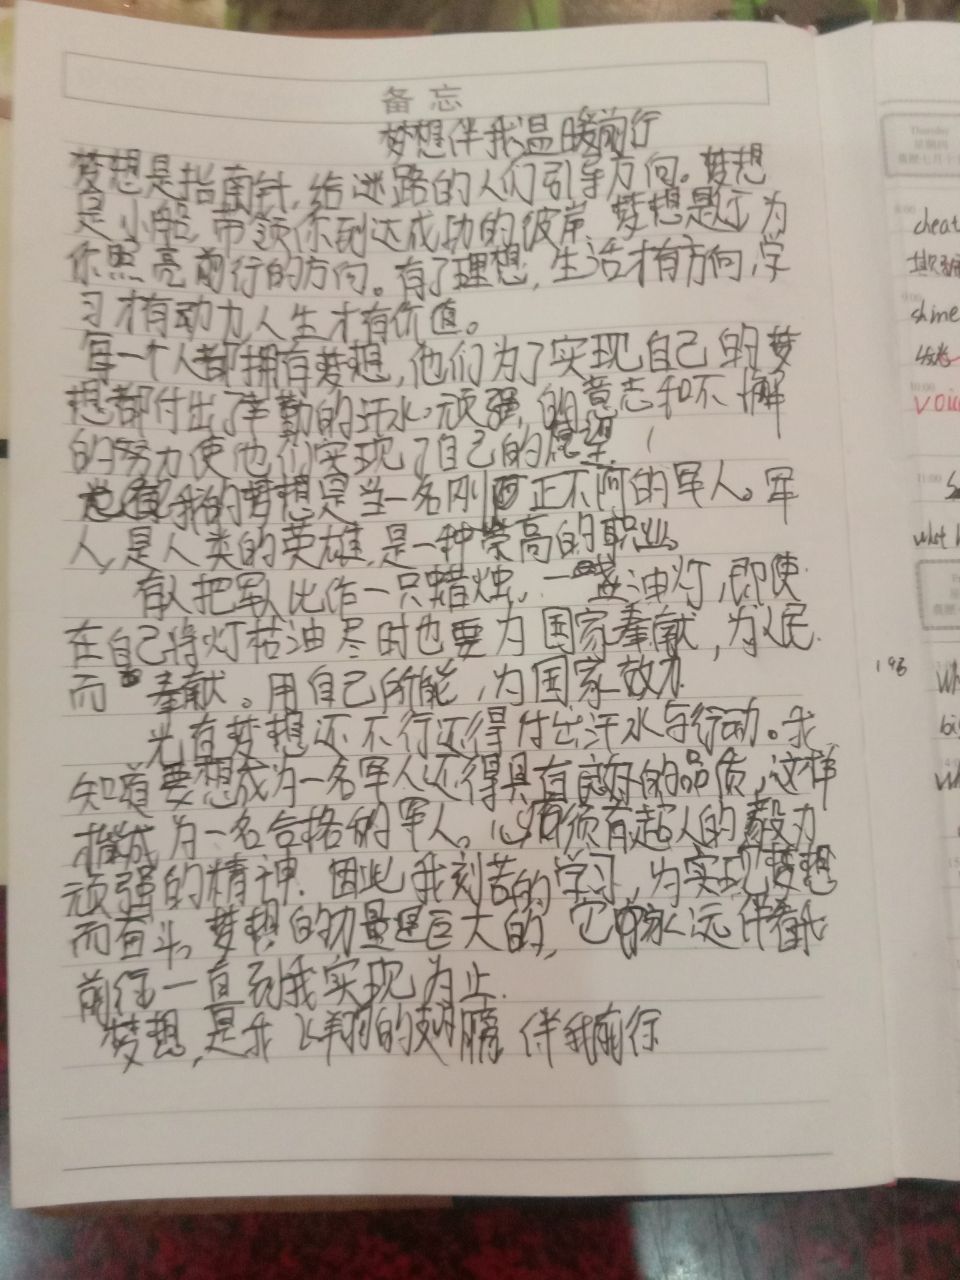 备忘
梦想伴我温暖前行
梦想是指南针，给迷路的人们引导方向。梦想
是小船，带领你到达成功的彼岸。梦想是 为
你照亮前行的方向。有了理想，生活才有方向，学
习才有动力，人生才有价值。
每一个人都拥有梦想，他们为了实现自己的梦
想都付出了辛勤的汗水。顽强的意志和不懈
的努力使他们实现了自己的愿望。
我的梦想是当一名刚正不阿的军人。军
人，是人类的英雄，是一种崇高的职业。
有人把军人比作一只蜡烛，一盏油灯，即使
在自己将灯枯油尽时也要为国家奉献，为人民
而奉献。用自己所能，为国家效力
光有梦想还不行还得付出汗水与行动。我
知道要想成为一名军人还得具有良好的品质，这样
才能成为一名合格的军人。必须有超人的毅力
顽强的精神。因此我刻苦的学习，为实现梦想
而奋斗。梦想的力量是巨大的，它永远伴着我
前行一直到我实现为止。
梦想，是我飞翔的翅膀，伴我前行
Thursday
星期四
8:00
cheat
9:00
shine
10:00
11:00
what
196
Wh
big
Wh